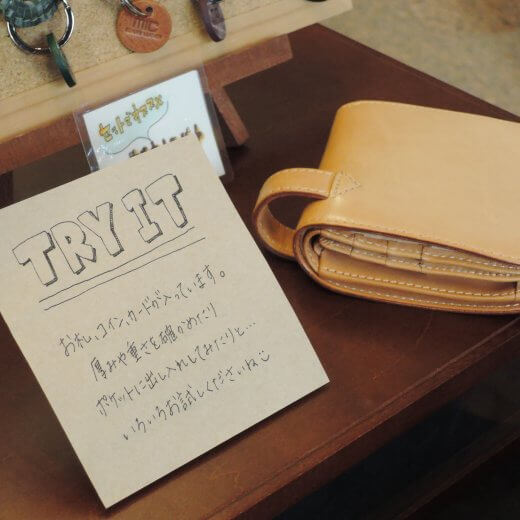 MIC
TRY IT
お札、コイン、カードが入っています。
厚みや重さを確かめたり
ポケットに出し入れしてみたりと…
いろいろお試しくださいね☺